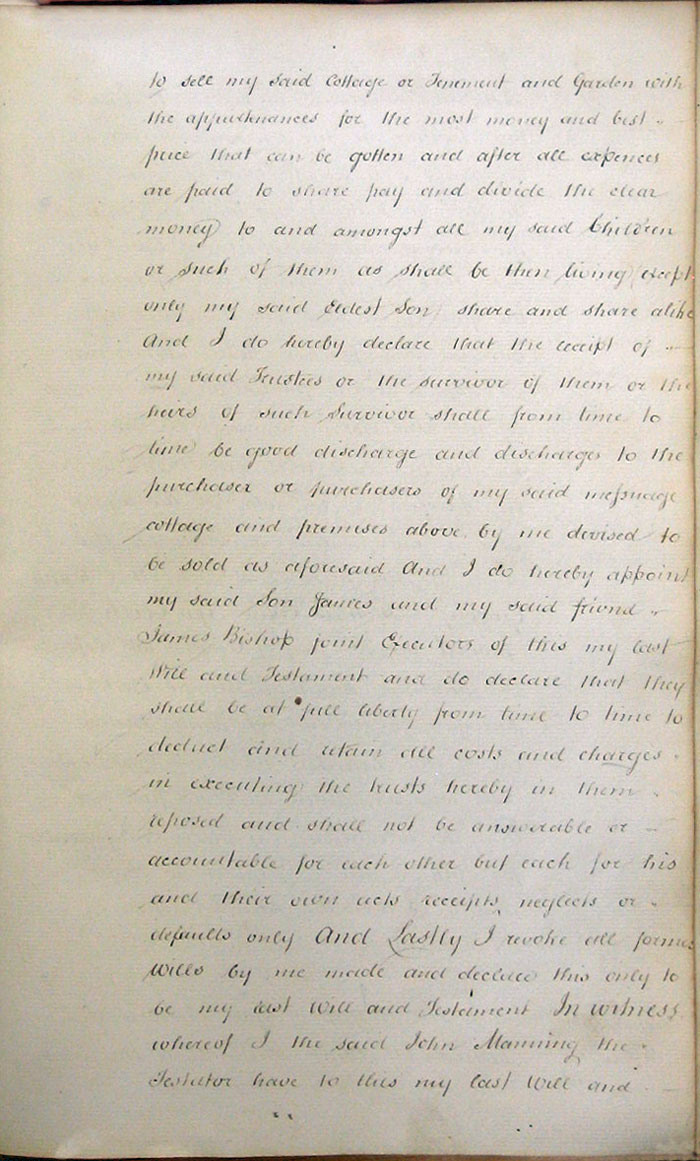 to sell my said Cottage or Tenement and Garden with
the appurtenances for the most money and best
price that can be gotten and after all expences
are paid to share pay and divide the clear
money to and amongst all my said Children
or such of them as shall be then living (except
only my said Eldest Son) share and share alike
And I do hereby declare that the receipt of
my said Trustees or the survivor of them or the
heirs of such Survivor shall from time to
time be good discharge and discharges to the
purchaser or purchasers of my said messuage
cottage and premises above by me devised to
be sold as aforesaid And I do hereby appoint
my said Son James and my said friend
James Bishop joint Executors of this my last
Will and Testament and do declare that they
shall be at full liberty from time to time to
deduct and retain all costs and charges
in executing the trusts hereby in them
reposed and shall not be answerable or
accountable for each other but each for his
and their own acts receipts neglects or
defaults only And Lastly I revoke all former
Wills by me made and declare this only to
be my last Will and Testament In witness
whereof I the said John Manning the
Testator have to this my last Will and